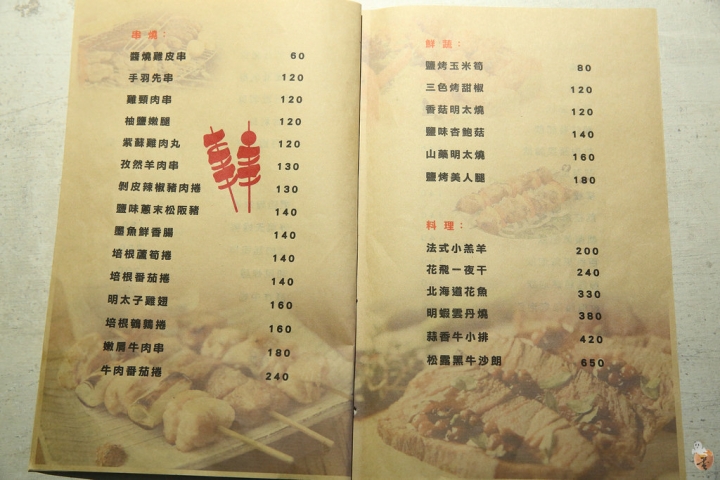 串燒：
醬燒雞皮串 60
手羽先串 120
雞頸肉串 120
柚鹽嫩腿 120
紫蘇雞肉丸 120
孜然羊肉串 130
剝皮辣椒豬肉捲 130
鹽味蔥末松阪豬 140
墨魚鮮香腸 140
培根蘆筍捲 140
培根番茄捲 140
明太子雞翅 160
培根鵪鶉捲 160
嫩肩牛肉串 180
牛肉番茄捲 240
鮮蔬：
鹽烤玉米筍 80
三色烤甜椒 120
香菇明太燒 120
鹽味杏鮑菇 140
山藥明太燒 160
鹽烤美人腿 180
料理：
法式小羔羊 200
花飛一夜干 240
北海道花魚 330
明蝦雲丹燒 380
蒜香牛小排 420
松露黑牛沙朗 650